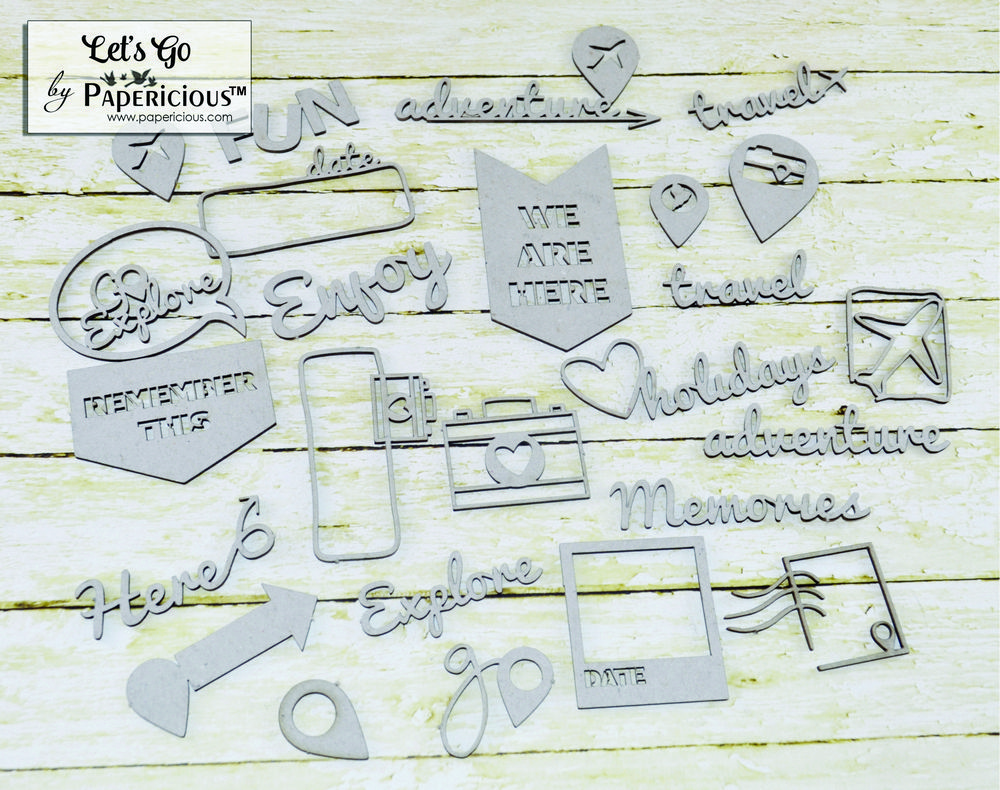 Let's Go
by PAPERICIOUS™
www.papericious.com
FUN
adventure
travel
date
WE
ARE
HERE
GO
Explore
Enjoy
travel
REMEMBER
THIS
holidays
adventure
Memories
Here
Explore
go
DATE